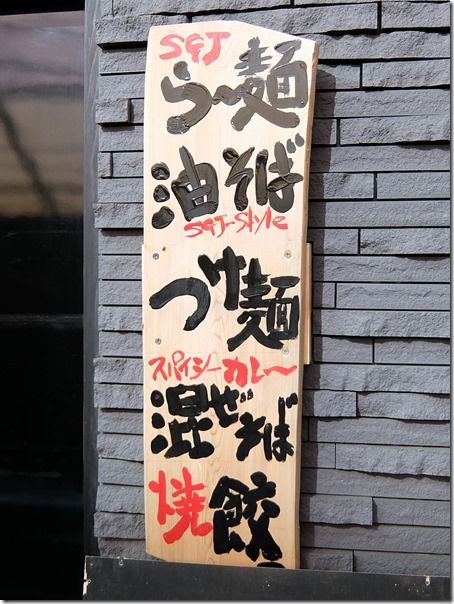 SGJ
ら〜麺
油そば
SGJ-Style
つけ麺
スパイシーカレ〜
混ぜそば
焼餃